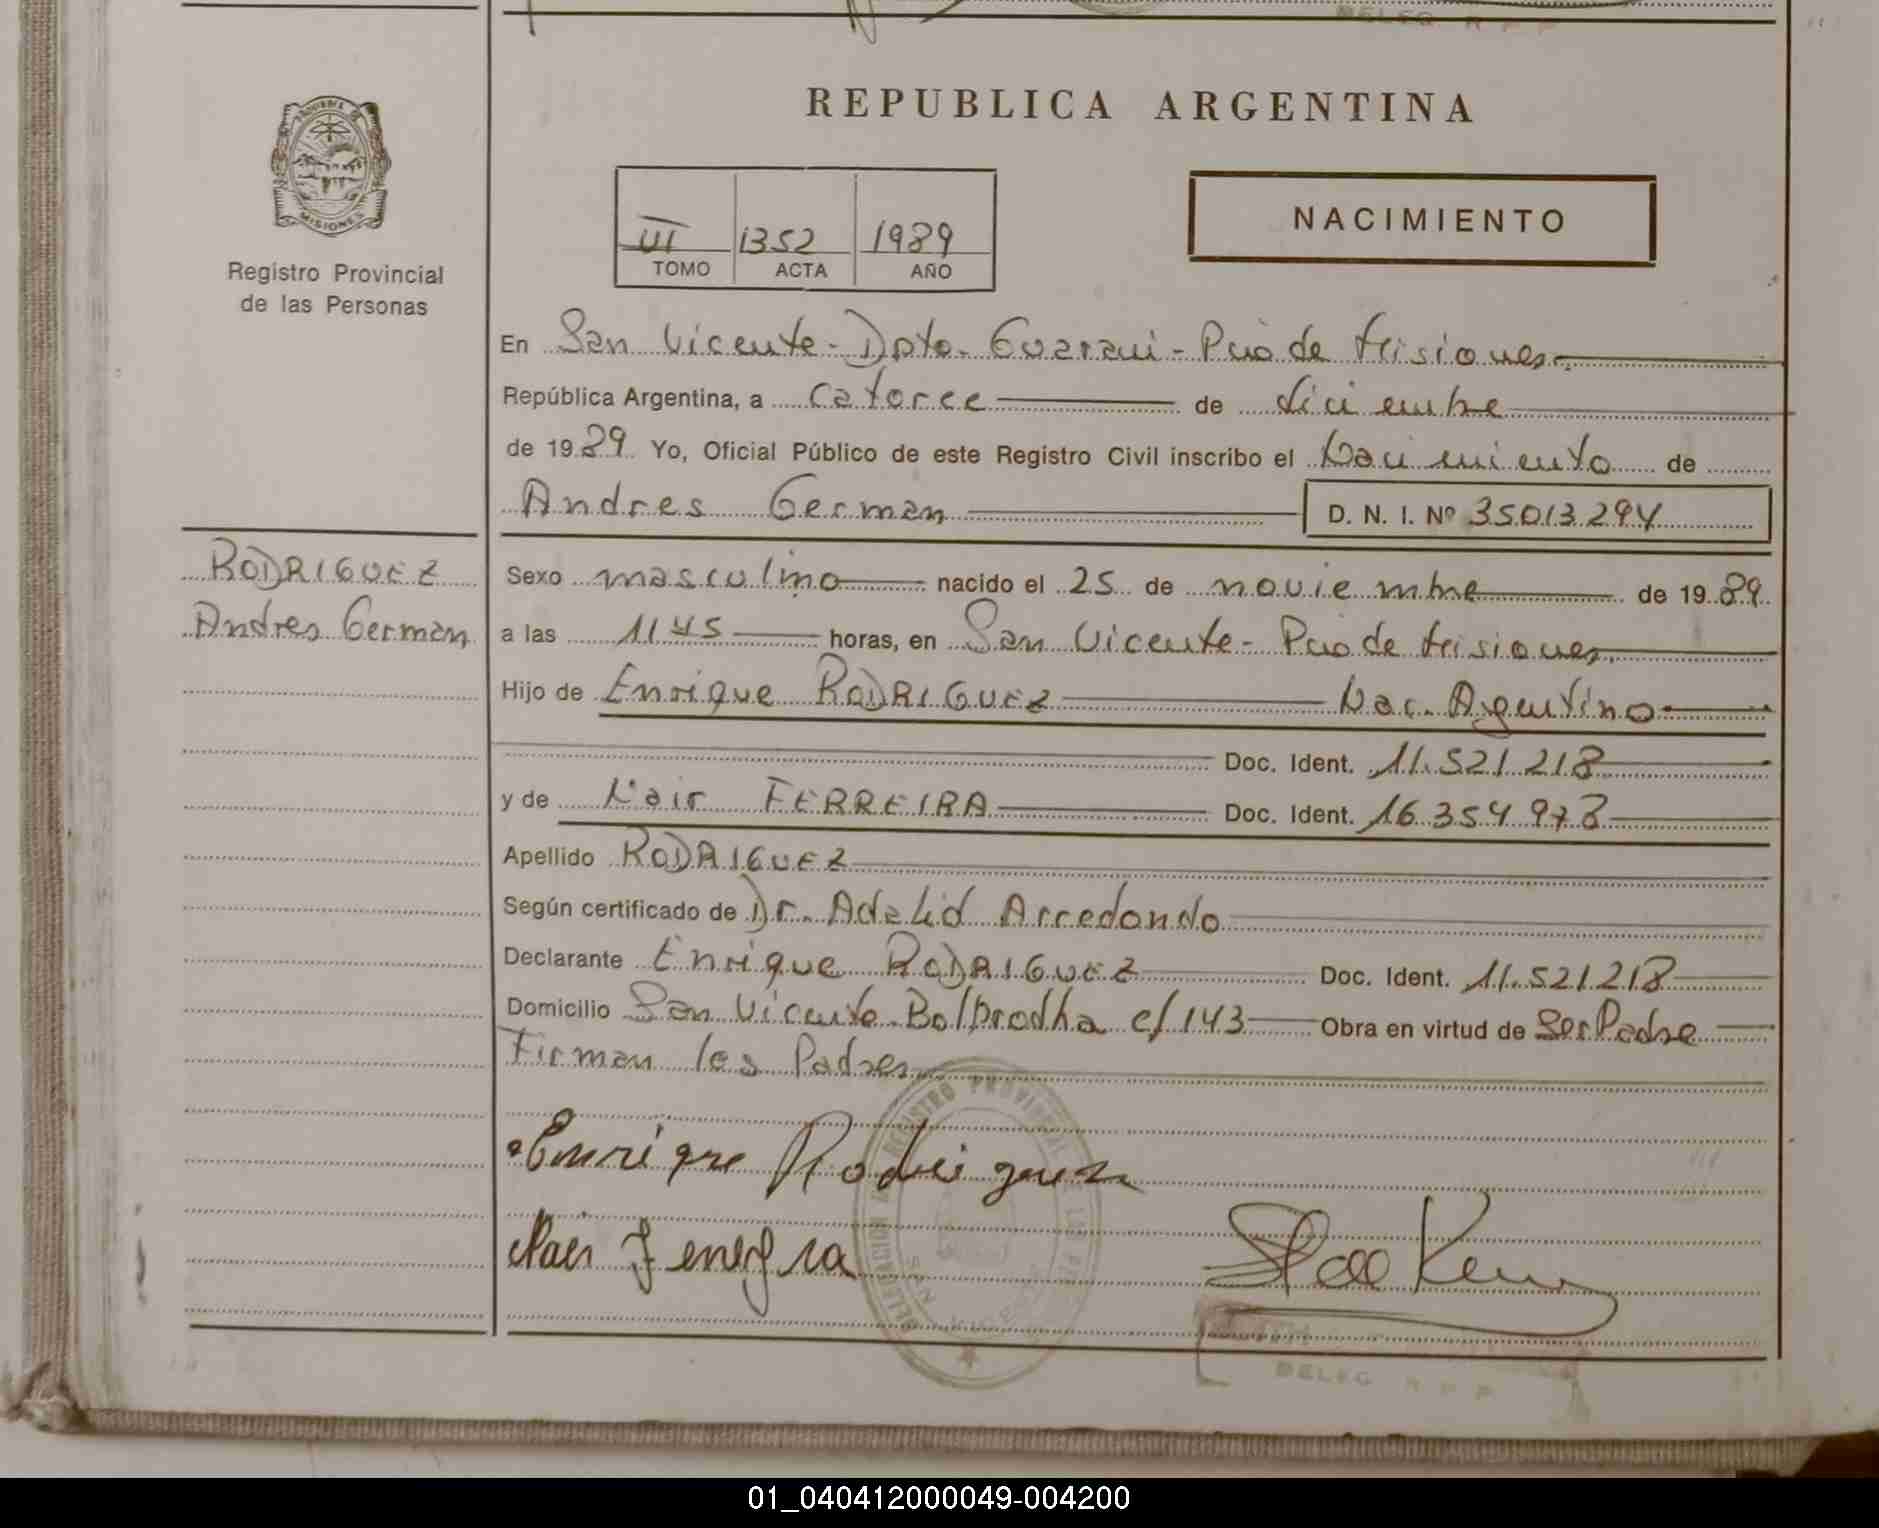 REPUBLICA ARGENTINA
MISIONES
Registro Provincial
de las Personas
III 1352 1989
TOMO ACTA AÑO
NACIMIENTO
En San Vicente - Dpto. Guarani - Pcia de Misiones.
República Argentina, a Catorce de diciembre
de 1989 Yo, Oficial Público de este Registro Civil inscribo el Nacimiento de
Andres German D. N. I. Nº 35013294
RODRIGUEZ
Andres German
Sexo masculino nacido el 25 de noviembre de 1989
a las 1145 horas, en San Vicente - Pcia de Misiones.
Hijo de Enrique RODRIGUEZ Nac. Argentino
Doc. Ident. 11.521.218
y de Nair FERREIRA Doc. Ident. 16.354.978
Apellido RODRIGUEZ
Según certificado de Dr. Adalid Arredondo
Declarante Enrique RODRIGUEZ Doc. Ident. 11.521.218
Domicilio San Vicente Bo/ c/143 Obra en virtud de Ser Padre
Firman los Padres
Enrique Rodriguez
Nair
DELEGACION REGISTRO PROVINCIAL DE LAS
SAN VICENTE
DELEG R P P
01_040412000049-004200